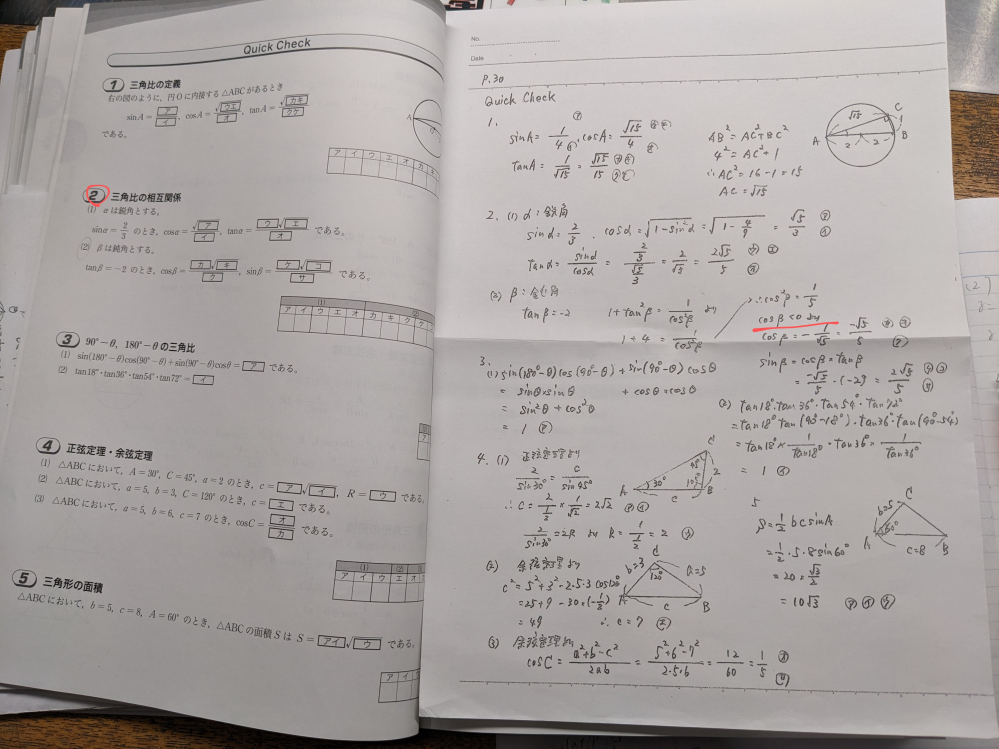 Quick Check
1 三角比の定義
右の図のように，円Oに内接する△ABCがあるとき
sinA = ア/イ, cosA = √ウエ/オ, tanA = √カキ/クケ
である。
ア イ ウ エ オ カ
2 三角比の相互関係
(1) αは鋭角とする。
sinα = 2/3 のとき，cosα = √ア/イ, tanα = ウ√エ/オ である。
(2) βは鈍角とする。
tanβ = −2 のとき，cosβ = カ√キ/ク, sinβ = ケ√コ/サ である。
(1) (2)
ア イ ウ エ オ カ キ ク ケ
3 90°−θ, 180°−θの三角比
(1) sin(180°−θ)cos(90°−θ)+sin(90°−θ)cosθ = ア である。
(2) tan18°・tan36°・tan54°・tan72° = イ
4 正弦定理・余弦定理
(1) △ABCにおいて，A=30°, C=45°, a=2 のとき，c = ア√イ, R = ウ である。
(2) △ABCにおいて，a=5, b=3, C=120° のとき，c = エ である。
(3) △ABCにおいて，a=5, b=6, c=7 のとき，cosC = オ/カ である。
(1) (2) (3)
ア イ ウ エ オ
5 三角形の面積
△ABCにおいて，b=5, c=8, A=60° のとき，△ABCの面積Sは S = アイ√ウ である。
ア イ ウ
No.
Date
P.30
Quick Check
1.
sinA = 1/4, cosA = √15/4
tanA = 1/√15 = √15/15
AB² = AC² + BC²
4² = AC² + 1
∴ AC² = 16 − 1 = 15
AC = √15
√15 C 1 A 2 2 B
2. (1) α : 鋭角
sinα = 2/3 . cosα = √1−sin²α = √1−4/9 = √5/3 ア イ
tanα = sinα/cosα = 2/3/√5/3 = 2/√5 = 2√5/5 ウ エ オ
(2) β : 鈍角
tanβ = −2 1 + tan²β = 1/cos²β より
1 + 4 = 1/cos²β
∴ cos²β = 1/5
cosβ < 0 より
cosβ = − 1/√5 = −√5/5 カ キ ク
sinβ = cosβ × tanβ
= −√5/5 · (−2) = 2√5/5 ケ コ サ
3.
(1) sin(180°−θ) cos(90°−θ) + sin(90°−θ) cosθ
= sinθ × sinθ + cosθ × cosθ
= sin²θ + cos²θ
= 1 ア
(2) tan18° · tan36° · tan54° · tan72°
= tan18° tan(90°−18°) · tan36° · tan(90°−54°)
= tan18° × 1/tan18° · tan36° × 1/tan36°
= 1 イ
4. (1) 正弦定理より
2/sin30° = c/sin45°
∴ c = 2/1/2 × 1/√2 = 2√2 ア イ
2/sin30° = 2R より R = 1/1/2 = 2 ウ
A 30° C 45° 2 105° B c
(2) 余弦定理より
c² = 5² + 3² − 2·5·3 cos120°
= 25 + 9 − 30 × (−1/2)
= 49 ∴ c = 7 エ
C b=3 120° a=5 A c B
(3) 余弦定理より
cosC = a²+b²−c²/2ab = 5²+6²−7²/2·5·6 = 12/60 = 1/5 オ カ
5
S = 1/2 bc sinA
= 1/2 · 5 · 8 sin60°
= 20 × √3/2
= 10√3 ア イ ウ
C b=5 A 60° c=8 B